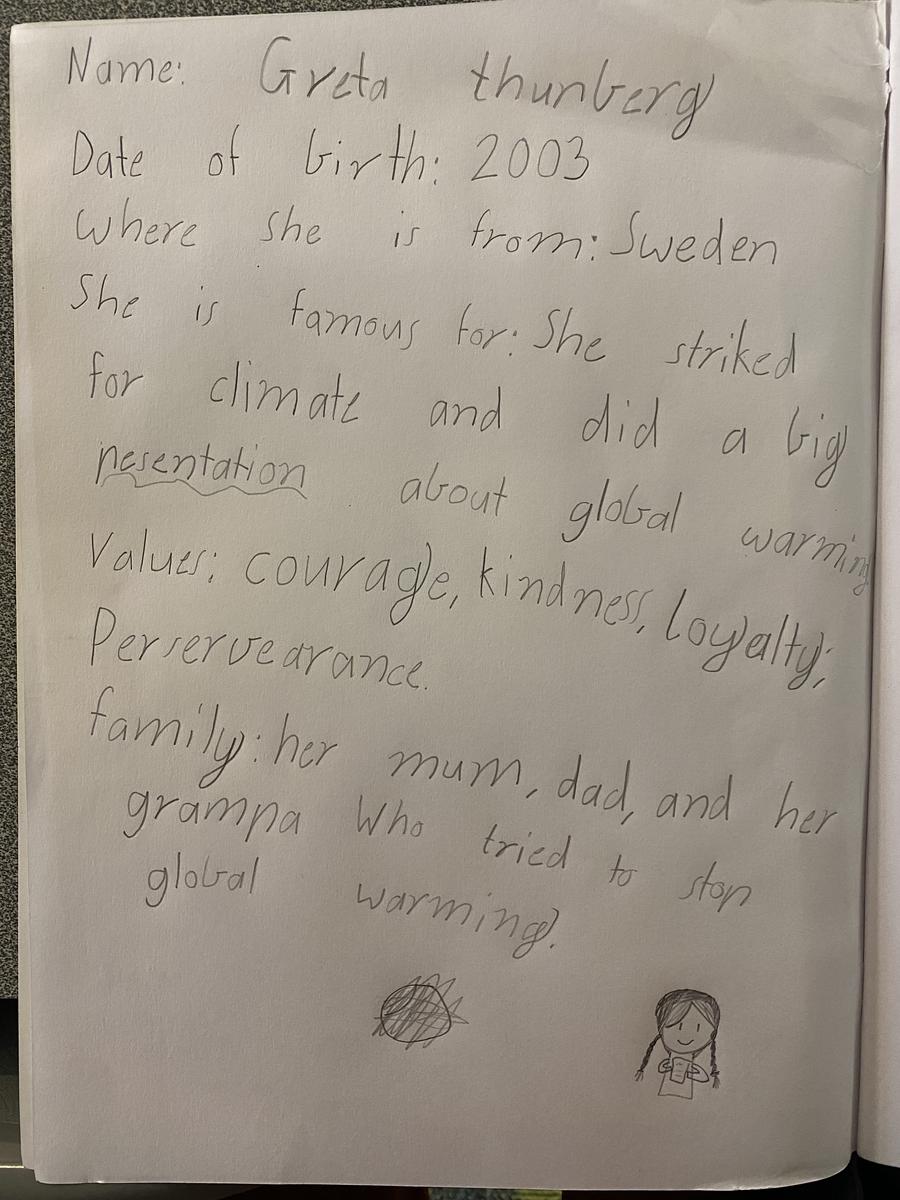 Name: Greta thunberg
Date of birth: 2003
Where she is from: Sweden
She is famous for: She striked
for climate and did a big
pesentation about global warming
Values: courage, kindness, loyalty,
Perservearance.
family: her mum, dad, and her
grampa who tried to stop
global warming.